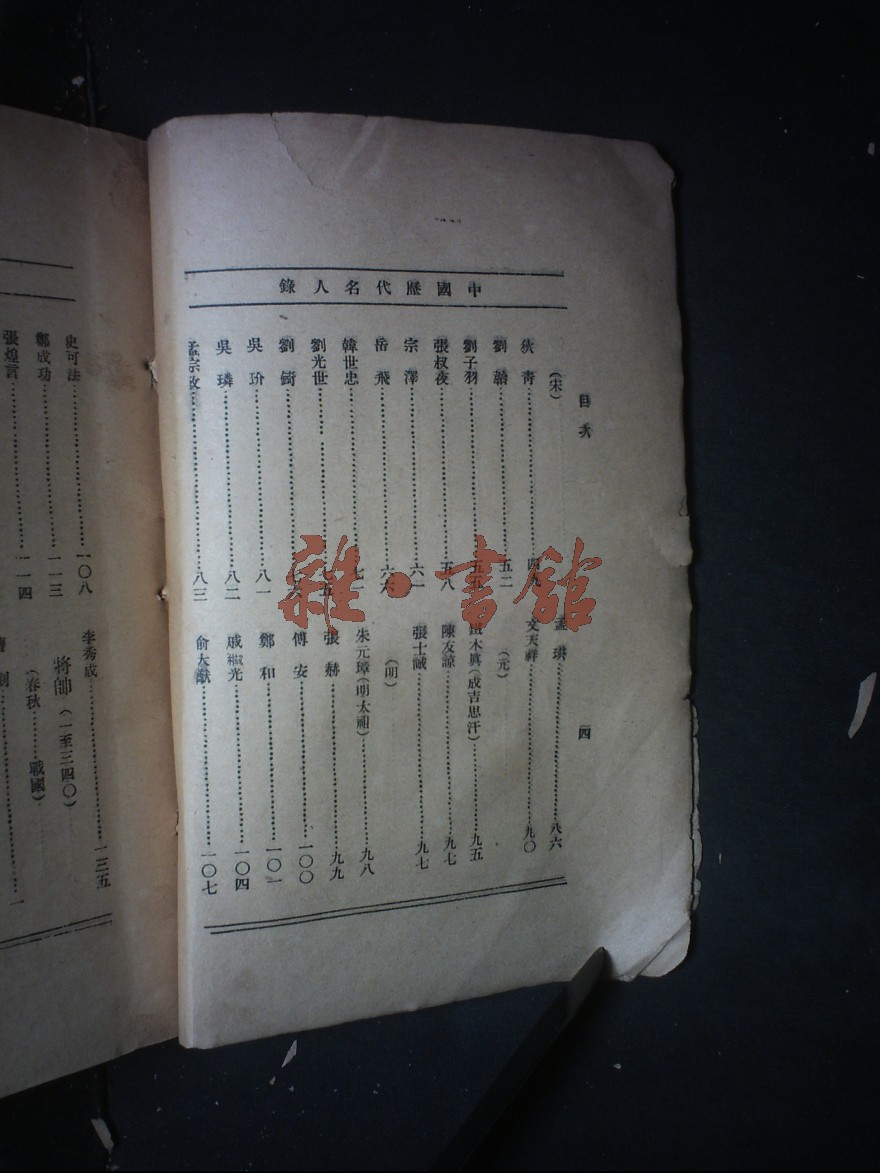 中國歷代名人錄
目次
四
(宋)
狄青…………四九
劉韐…………五二
劉子羽…………五五
張叔夜…………五八
宗澤…………六一
岳飛…………六六
韓世忠…………七一
劉光世…………七五
劉錡…………
吳玠…………八一
吳璘…………八二
孟宗政…………八三
孟珙…………八六
文天祥…………九〇
(元)
鐵木真(成吉思汗)…………九五
陳友諒…………九七
張士誠…………九七
(明)
朱元璋(明太祖)…………九八
張赫…………九九
傅安…………一〇〇
鄭和…………一〇一
戚繼光…………一〇四
俞大猷…………一〇七
史可法…………一〇八
鄭成功…………一一三
張煌言…………一一四
李秀成…………一三五
將帥(一至三四〇)
(春秋………戰國)
…………一
雜·書館